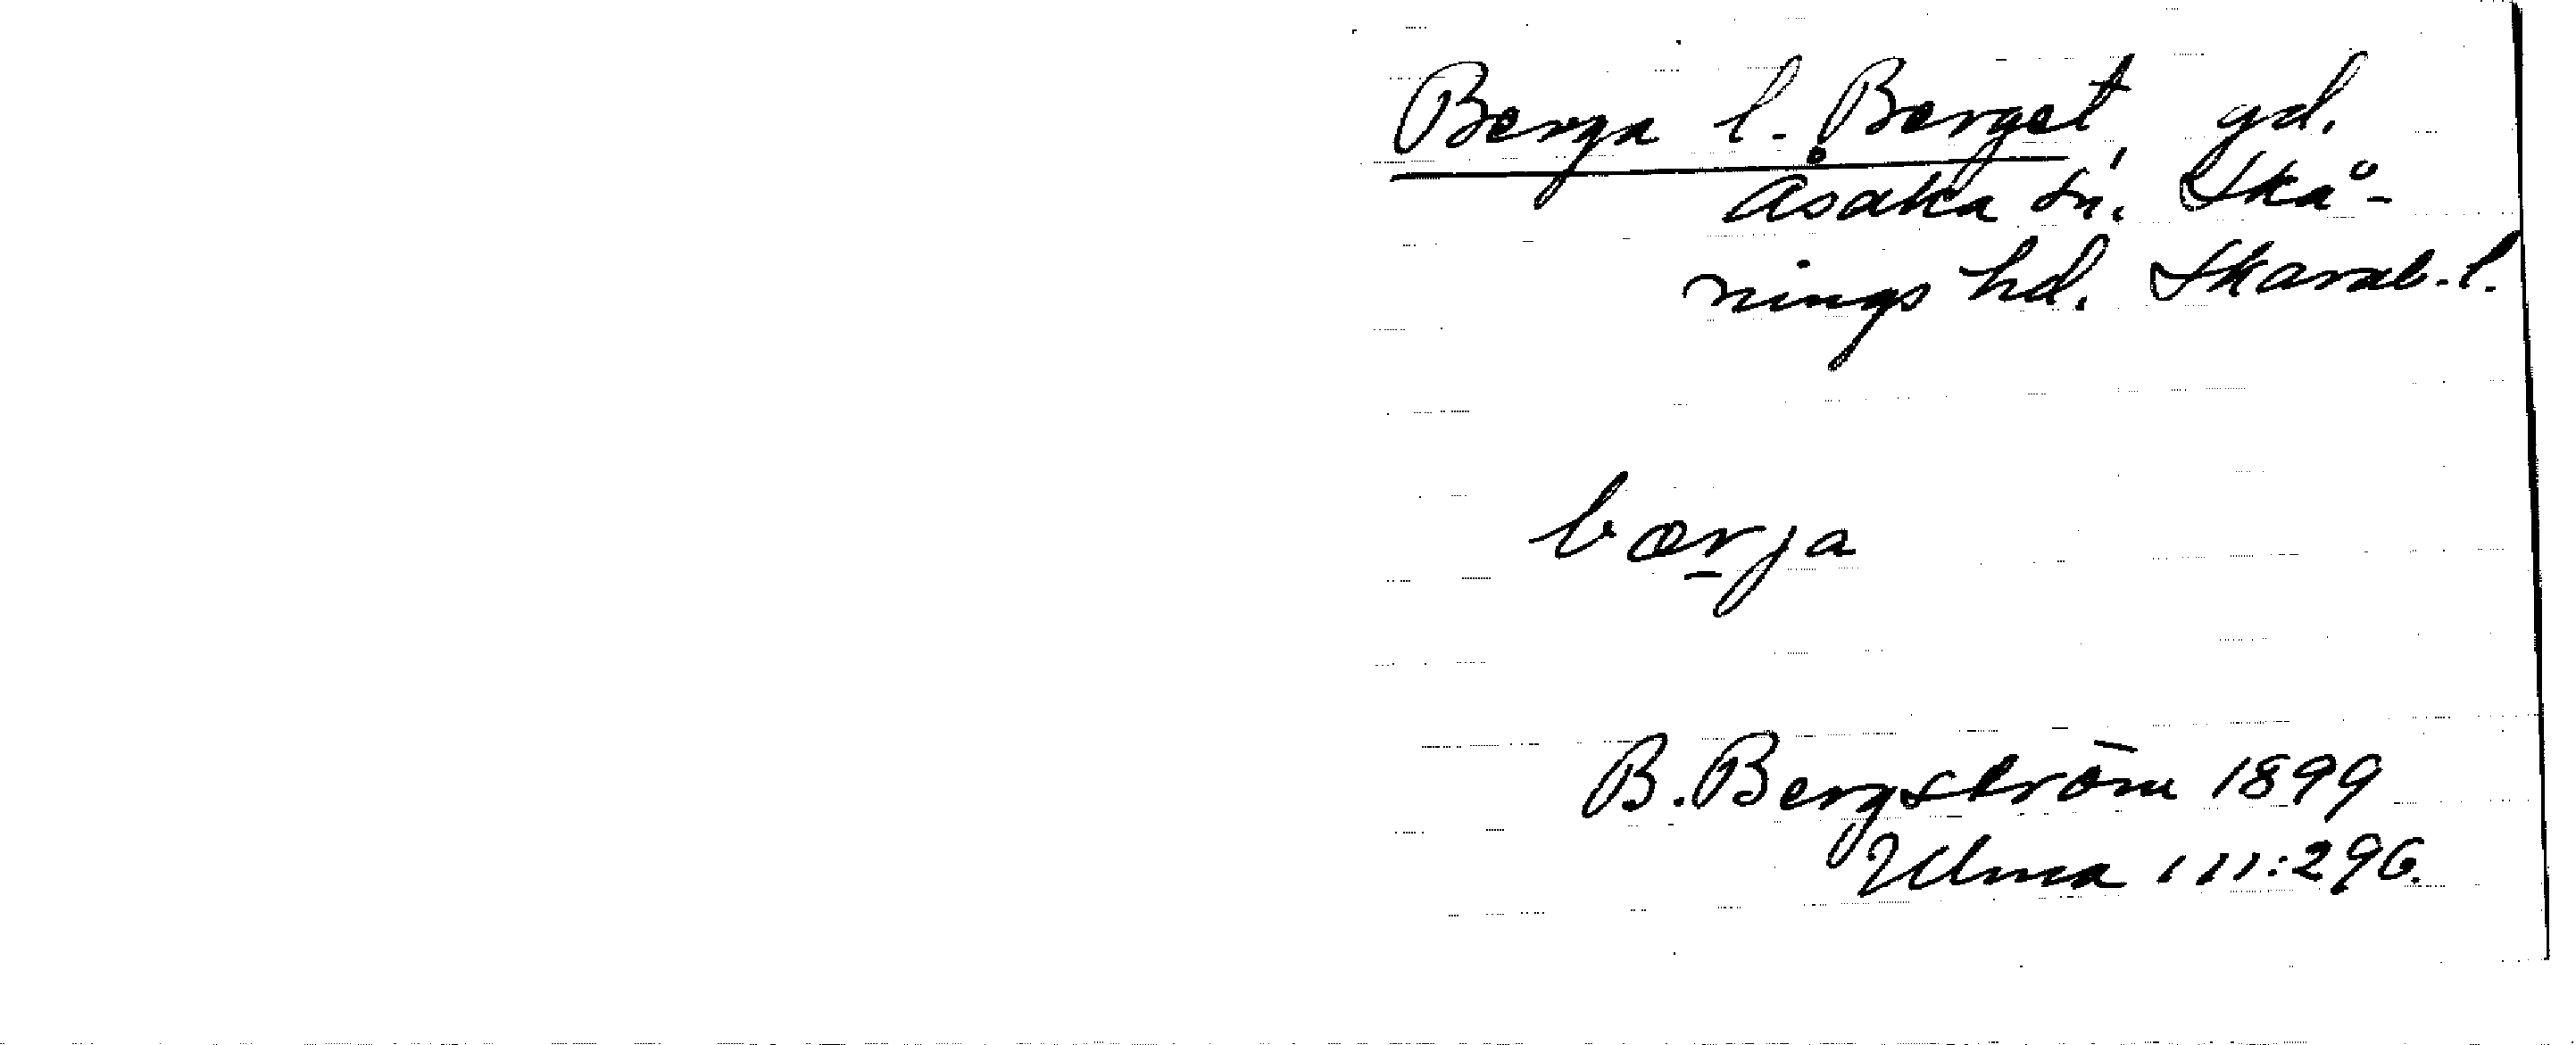 Berga l. Berget, gd.
Åsaka sn. Skå-
nings hd. Skarab. l.
bærja
B. Bergström 1899
Ulma 111:296.